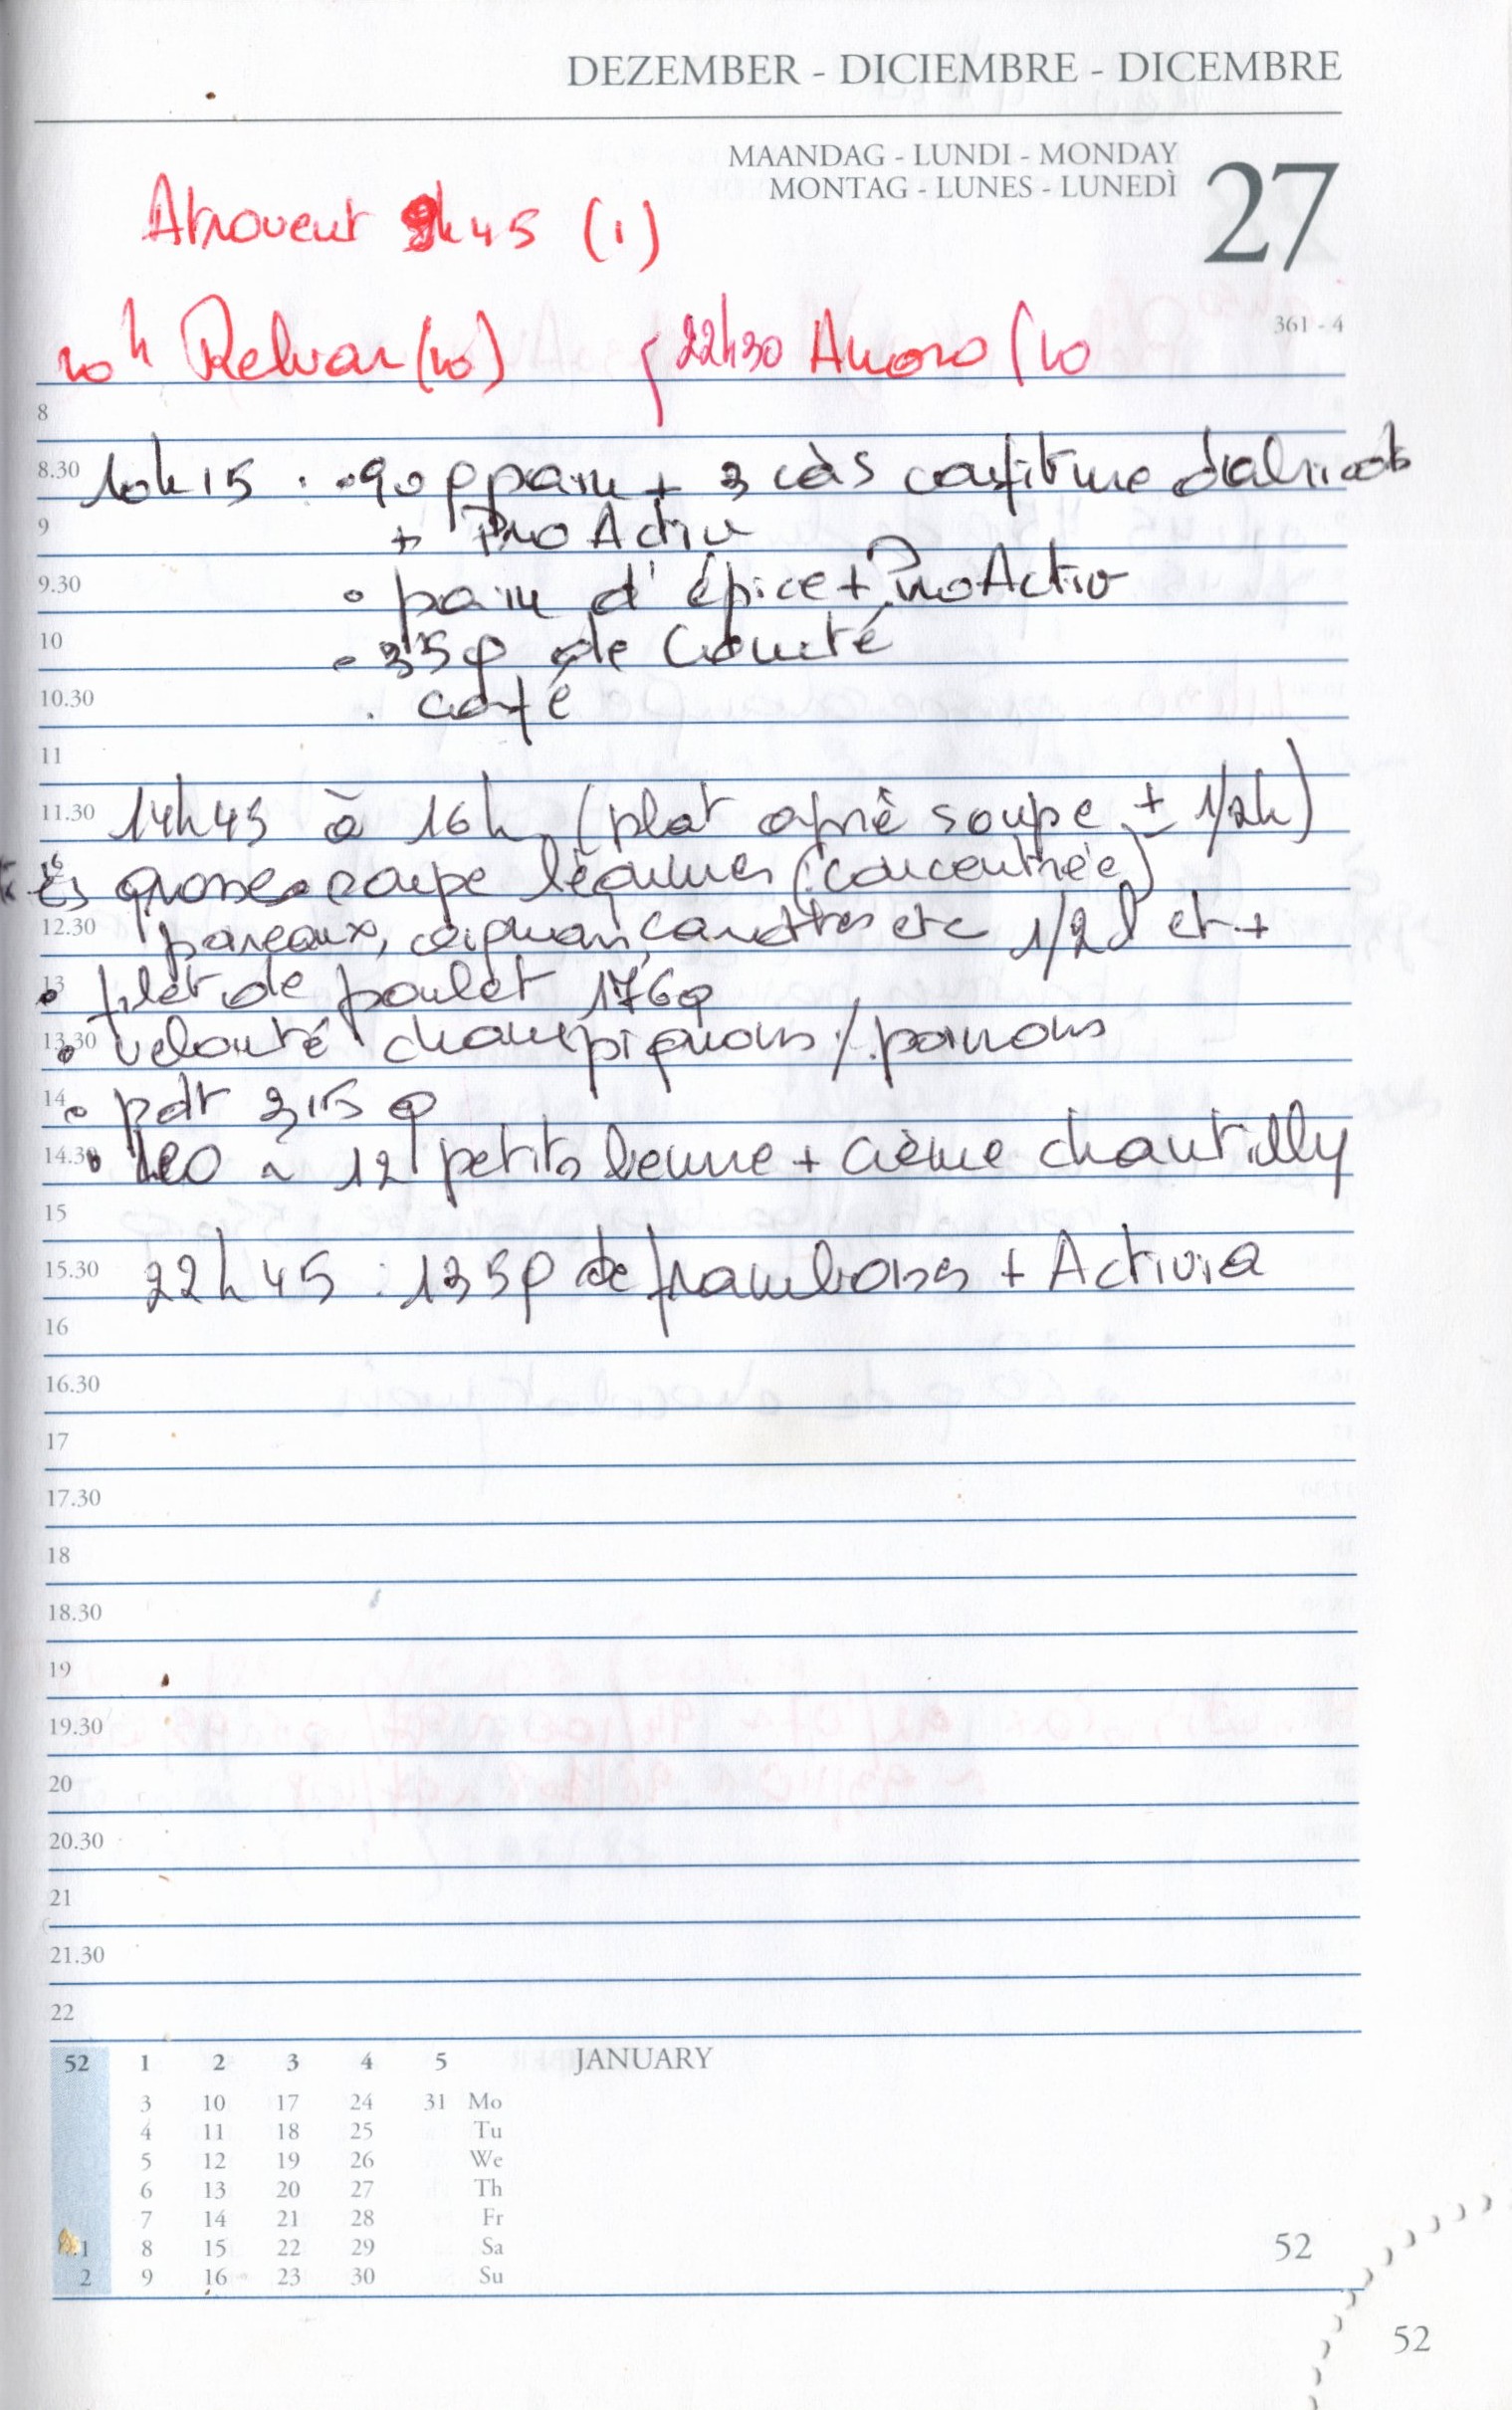 DEZEMBER - DICIEMBRE - DICEMBRE
MAANDAG - LUNDI - MONDAY
MONTAG - LUNES - LUNEDÌ
27
Atrovent 9h45 (1)
361 - 4
10h Relvar (10) 22h30 Anoro (10
8
8.30 10h15 : 90g pain + 3 càs confiture d'abricots
9 + ProActiv
9.30 • pain d'épice + ProActiv
10 • 35g de Comté
10.30 . café
11
11.30 14h45 à 16h (plat aprè soupe ± 1/2h)
grosse soupe légumes (concentrée)
12.30 poreaux, oignon, carottes etc 1/2 l et +
13 • filet de poulet 176g
13.30 • velouté champignons / poivrons
14 • pdt 315 g
14.30 • LEO ~ 12 petits beurre + crème chantilly
15
15.30 22h45 : 135g de framboises + Activia
16
16.30
17
17.30
18
18.30
19
19.30
20
20.30
21
21.30
22
52 1 2 3 4 5 JANUARY
3 10 17 24 31 Mo
4 11 18 25 Tu
5 12 19 26 We
6 13 20 27 Th
7 14 21 28 Fr
1 8 15 22 29 Sa
2 9 16 23 30 Su
52
52